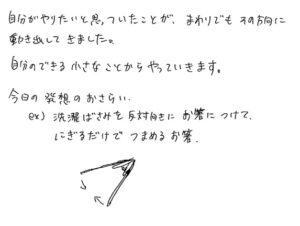 自分がやりたいと思っていたことが、まわりでもその方向に
動き出してきました。
自分のできる小さなことからやっていきます。
今日の発想のおさらい.
ex) 洗濯ばさみを反対向きにお箸につけて、
にぎるだけでつまめるお箸.